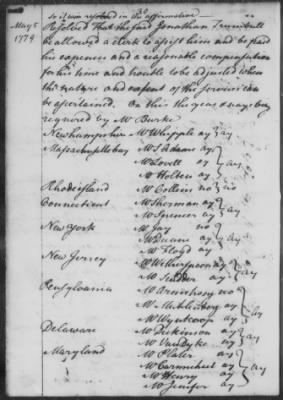 30
so it was resolved in the affirmative —
May 5 Resolved That the said Jonathan Trumbull
1779 be allowed a clerk to assist him and be paid
his expences and a reasonable compensation
for his time and trouble to be adjusted when
the nature and extent of the services can
be ascertained. On this the yeas & nays being
required by Mr Burke
New hampshire Mr Whipple ay } ay
Massachusettsbay Mr S Adams ay
Mr Lovell ay } ay
Mr Holten ay
Rhodeisland Mr Collins no } no
Connecticut Mr Sherman ay
Mr Spencer ay } ay
New York Mr Jay no
Mr Duane ay } ay
Mr Floyd ay
New Jersey Mr Witherspoon ay
Mr Scudder ay } ay
Pensylvania Mr Armstrong no
Mr Muhlenberg ay } ay
Mr Wynkoop ay
Delaware Mr Dickinson ay
Mr VanDyke ay } ay
Maryland Mr Plater ay
Mr Carmichael ay
Mr Henry ay } ay
Mr Jenifer ay